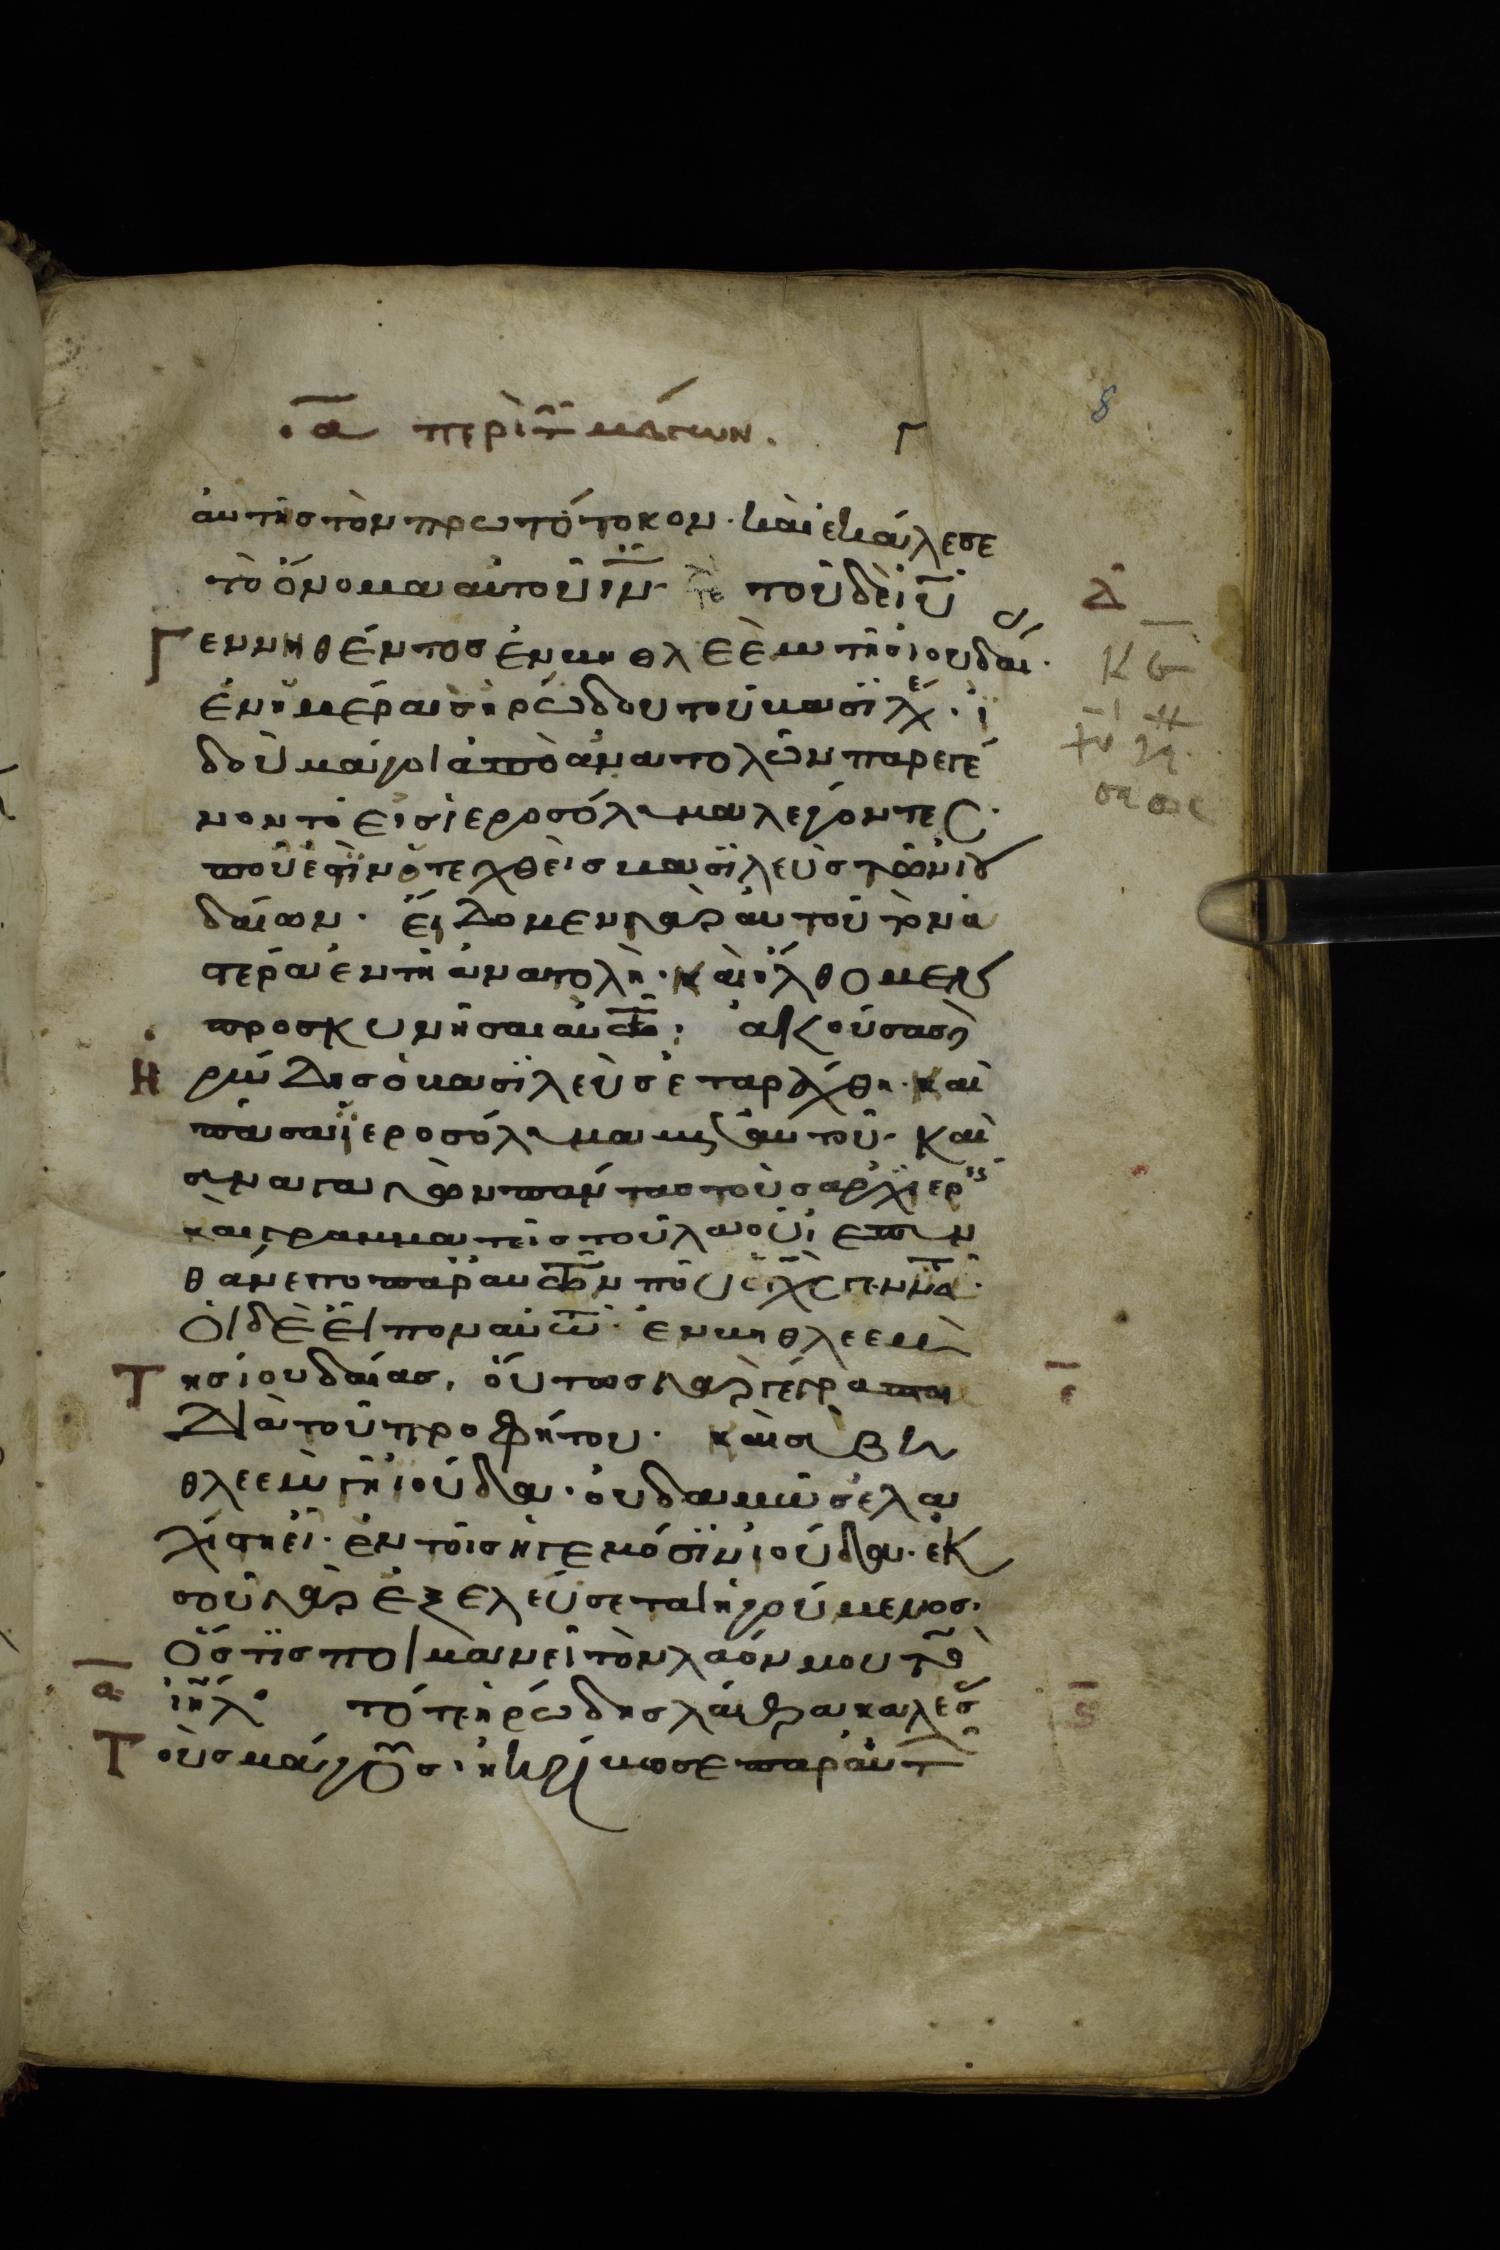 α περὶ τ μάγων. Γ 8
αυτῆς τὸν πρωτότοκον· καὶ ἐκάλεσε
τὸ ὄνομα αὐτοῦ ιν· τε τοῦ δὲ ιυ
Γεννηθέντος ἐν βηθλεὲμ τῆς ἰουδαί·
ἐν ἡμέραις ἡρώδου τοῦ βασιλέ· ἰ
δοὺ μάγοι ἀπὸ ἀνατολῶν παρεγέ
νοντο εἰς ἱεροσόλυμα λέγοντες·
ποῦ ἐστὶν ὁ τεχθεὶς βασιλεὺς τῶν ἰου
δαίων· εἴδομεν γὰρ αὐτοῦ τὸν ἀ
στέρα ἐν τῆ ἀνατολῆ· καὶ ἤλθομεν
προσκυνῆσαι αὐτῶ: ἀκούσας δὲ
Ηρώδης ὁ βασιλεὺς ἐταράχθη· καὶ
πᾶσα ἱεροσόλυμα μετ αὐτοῦ· καὶ
συναγαγὼν πάντας τοὺς ἀρχιερεῖς
καὶ γραμματεῖς τοῦ λαοῦ, ἐπυν
θάνετο παρ αὐτῶν ποῦ ὁ χς γεννᾶ·
Οἱ δὲ εἶπον αὐτῶ· ἐν βηθλεεμ
Τῆς ἰουδαίας, οὕτως γὰρ γέγραπται
Διὰ τοῦ προφήτου· καὶ σὺ βη
θλεεμ γῆ ἰούδα· οὐδαμῶς ἐλα
χίστη εἶ· ἐν τοῖς ἡγεμόσιν ἰούδα· ἐκ
σοῦ γὰρ ἐξελεύσεται ἡγούμενος·
Ὅστις ποιμανεῖ τὸν λαόν μου τὸν
ιηλ· τότε ἡρώδης λάθρα καλέσ
Τοὺς μάγους· ἠκρίβωσε παρ αὐτ
Δ
ε
ς
α